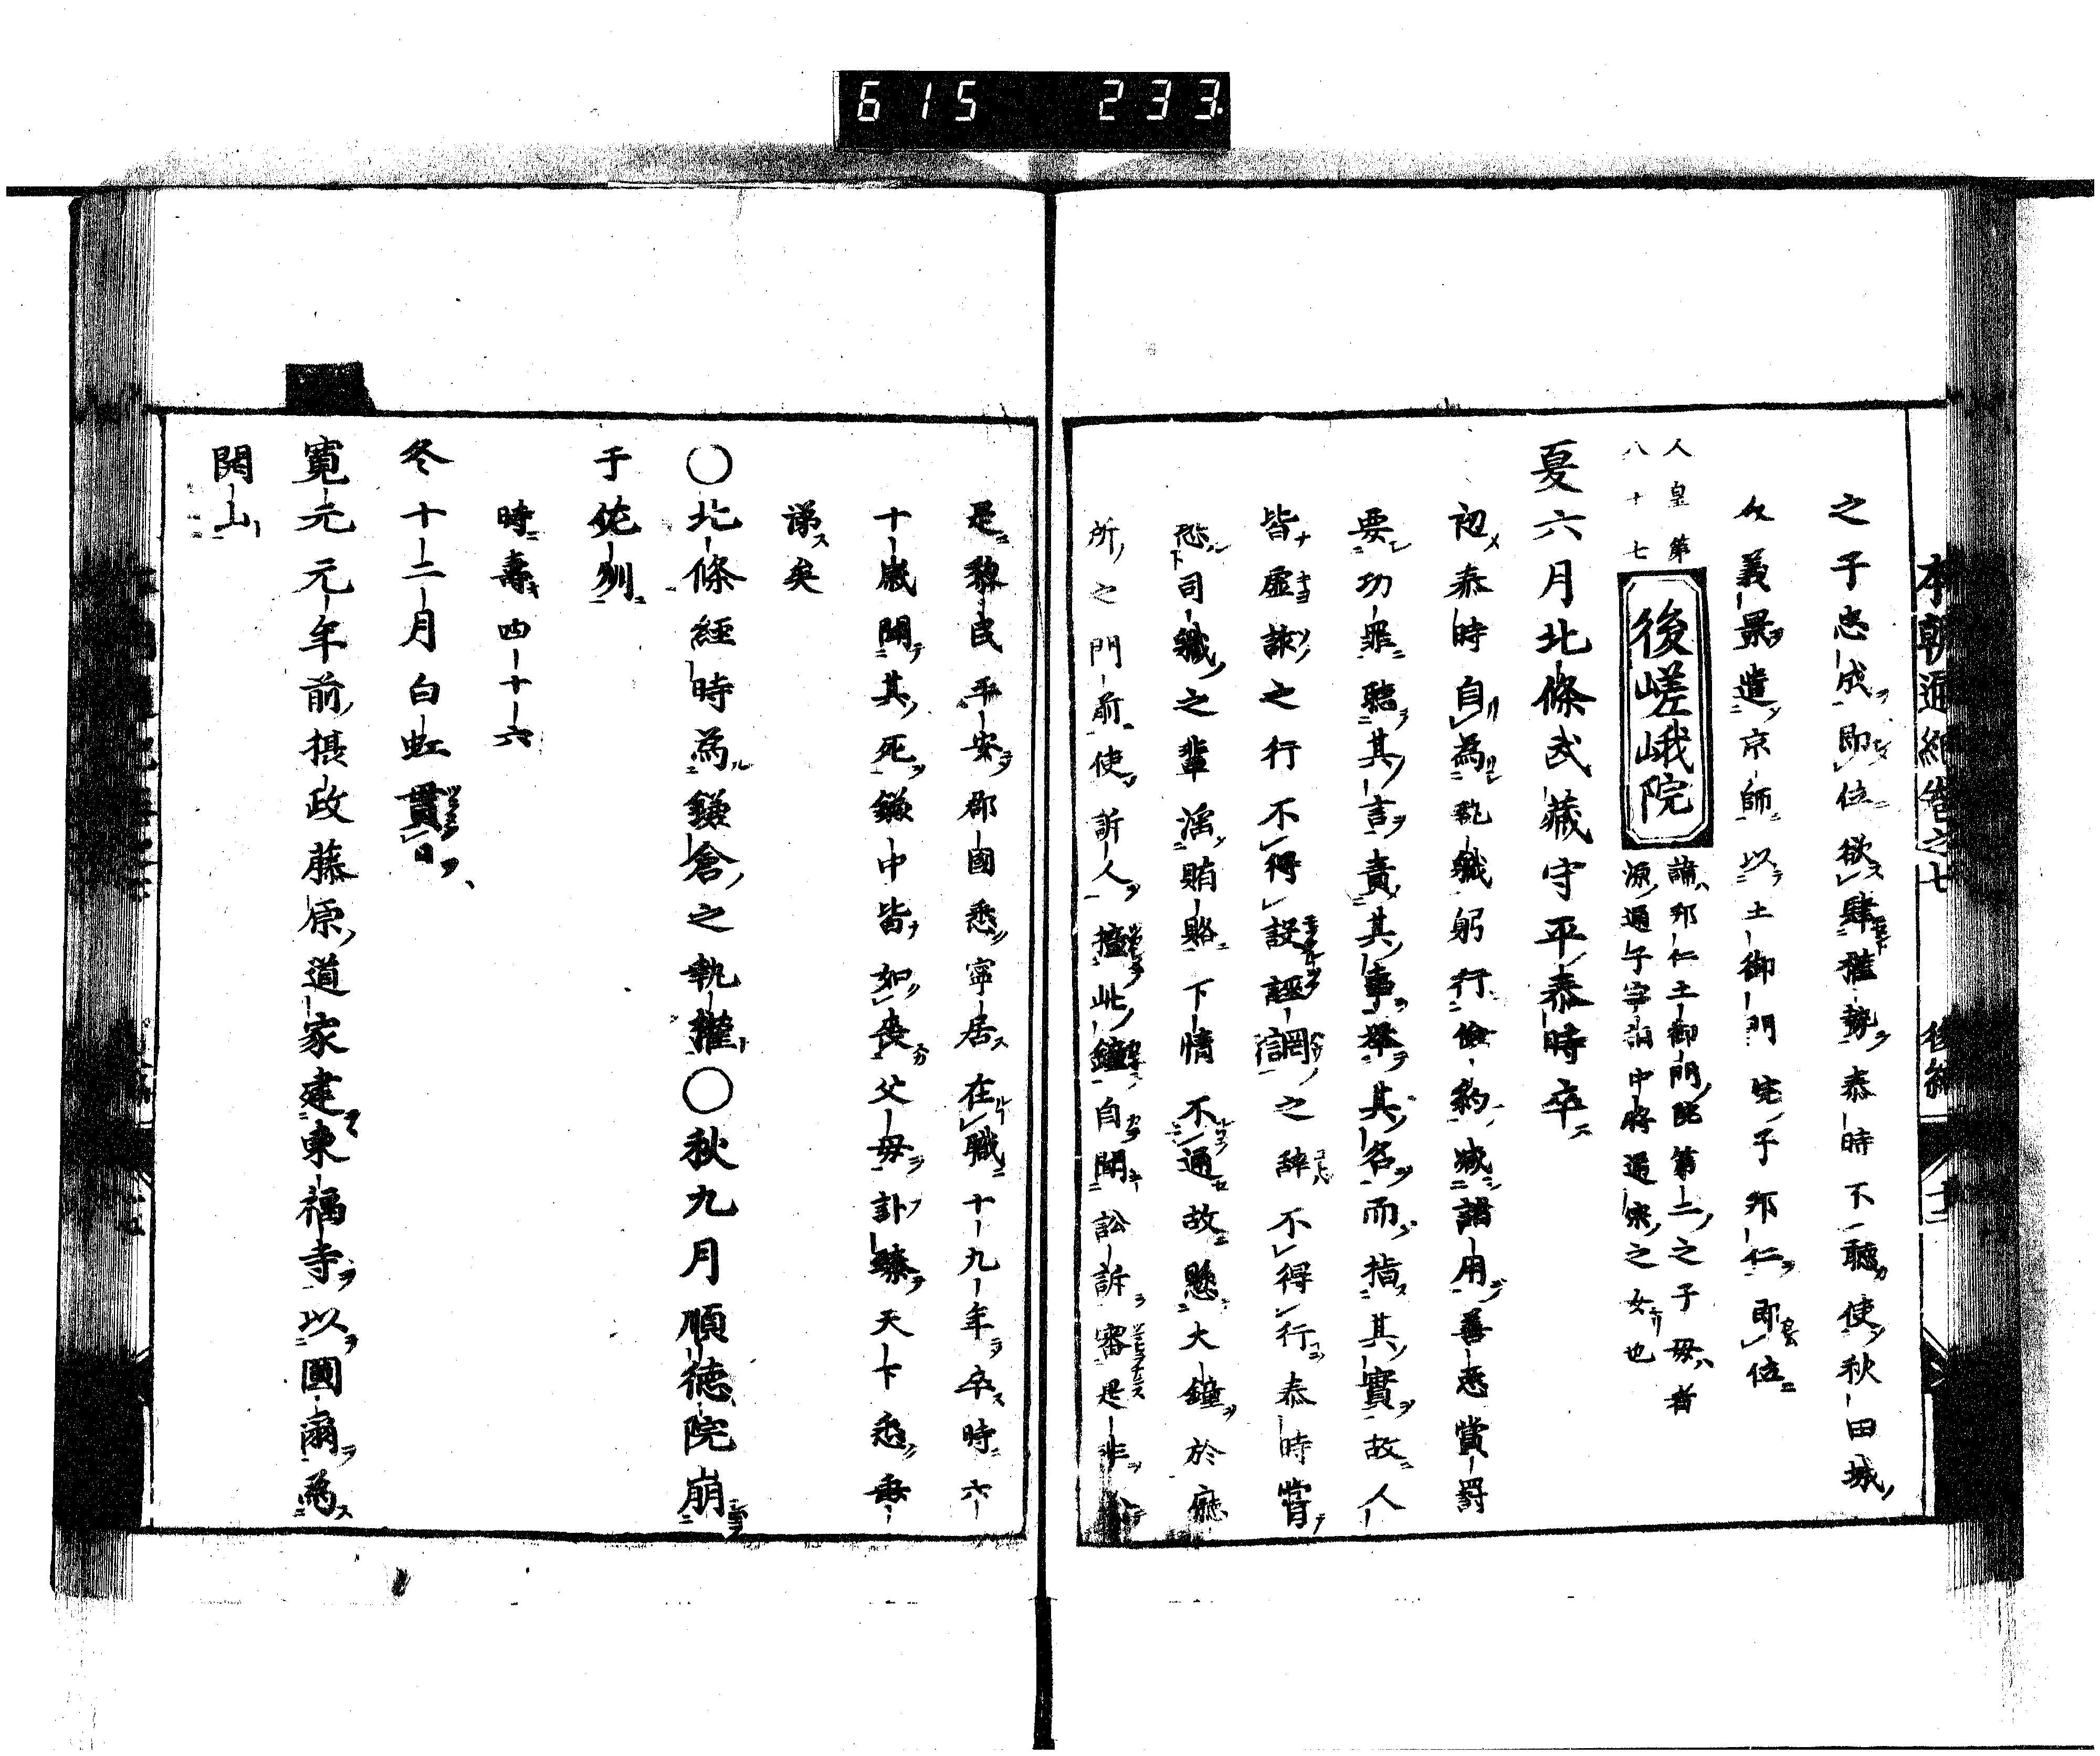 615 233
本朝通紀卷之七 後編
之子忠成即位欲肆權勢泰時不聽使秋田城
義景遣京師以土御門院子邦仁即位
人皇第
八十七
後嵯峨院
諱邦仁土御門院第二之子母者
源通子宰相中將通宗之女也
夏六月北條武藏守平泰時卒
初泰時自為執職躬行儉約減諸用善悉賞爵
要功罪聽其言責其事舉其名而指其實故人
皆虛詼之行不得設誣謂之辭不得行泰時嘗
恐司職之輩淫賄賂下情不通故懸大鐘於廳
所之門前使訴人撞此鐘自聞訟訴審是非
是黎民平安郡國悉寧居在職十九年卒時六
十歲聞其死鎌中皆如喪父母訃臻天下悉垂
涕矣
○北條經時為鎌倉之執權○秋九月順德院崩
于佐州
時壽四十六
冬十二月白虹貫日
寛元元年前攝政藤原道家建東福寺以圓爾為
開山